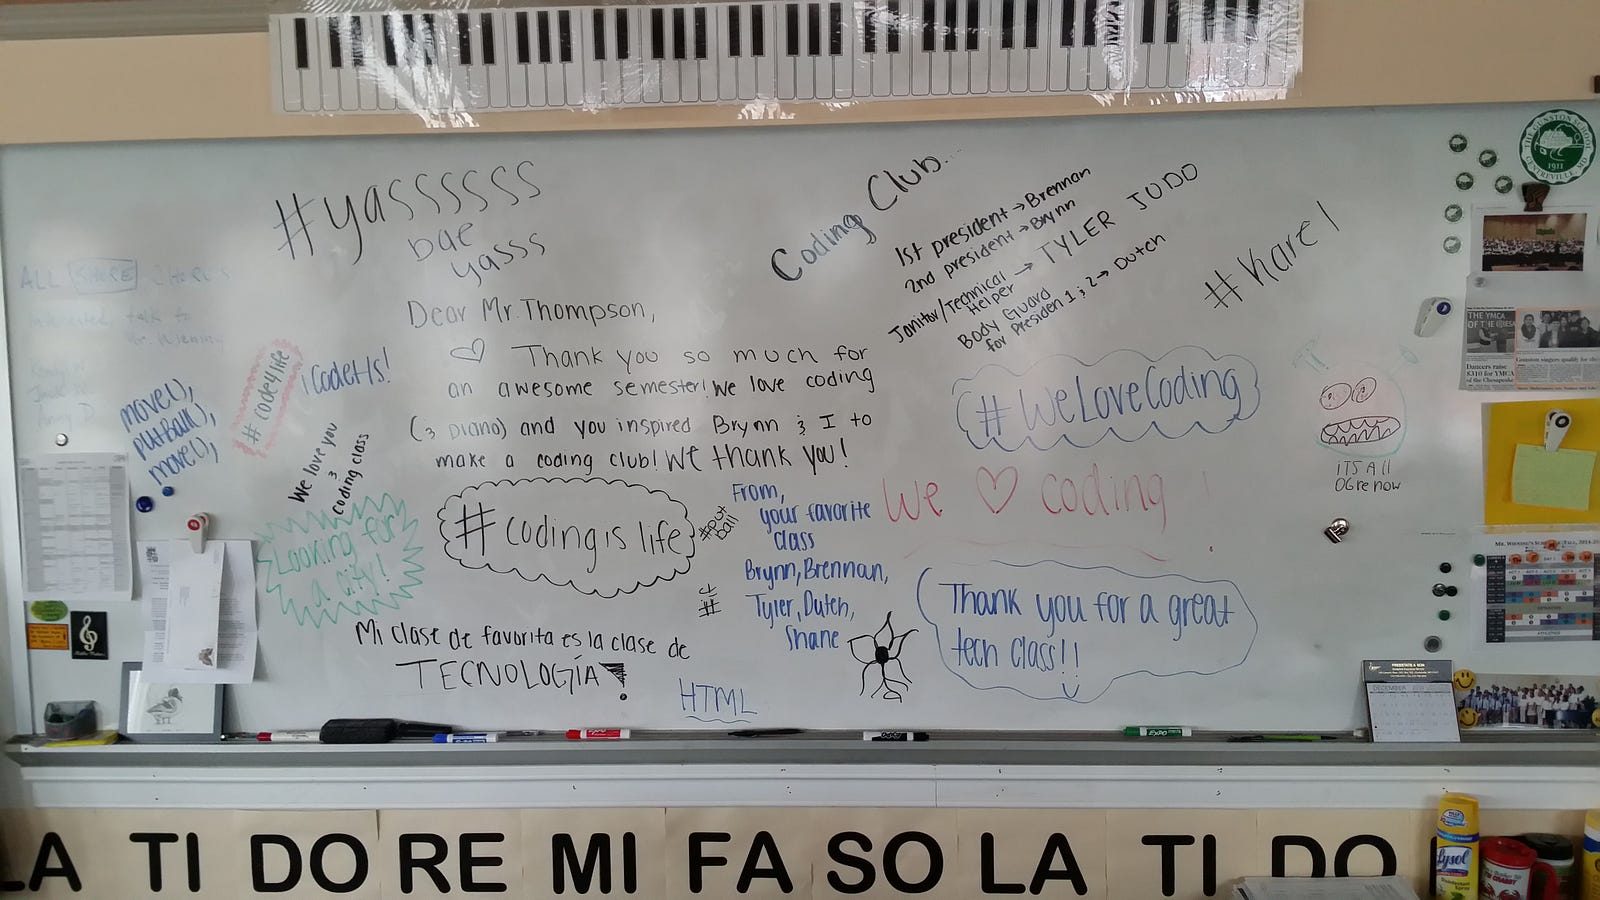 #yassssss
bae
yasss
Coding Club...
1st president → Brennan
2nd president → Brynn
Janitor/Technical Helper → TYLER JUDO
Body Guard
for Presiden 1 & 2 → Dutch
#karel
THE GUNSTON SCHOOL
CENTREVILLE, MD
1911
ALL SHORE
talk to
Dear Mr. Thompson,
♡ Thank you so much for
an awesome semester! We love coding
(& piano) and you inspired Brynn & I to
make a coding club! We thank you!
From,
your favorite
class
Brynn, Brennan,
Tyler, Dutch,
Shane
move();
putBall();
move();
#code4life
iCodeHs!
We love you
&
coding class
Looking for
a city!
#codingis life
#put
ball
#WeLoveCoding
We ♡ coding
Thank you for a great
tech class!!
Mi clase de favorita es la clase de
TECNOLOGÍA!
HTML
iTS All
OGre now
THE YMCA
Gunston singers qualify for
Dancers raise
$310 for YMCA
of the Chesapeake
DECEMBER
EXPO
LA TI DO RE MI FA SO LA TI DO
Lysol